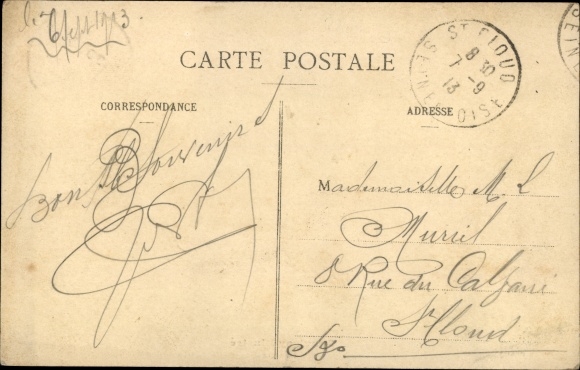 6 Sept 1913
CARTE POSTALE
ST CLOUD
8 30
7 - 9
13
OISE
CORRESPONDANCE
ADRESSE
Bon Souvenir
Mademoiselle M. L
Muriel
8 Rue du Calvaire
St Cloud